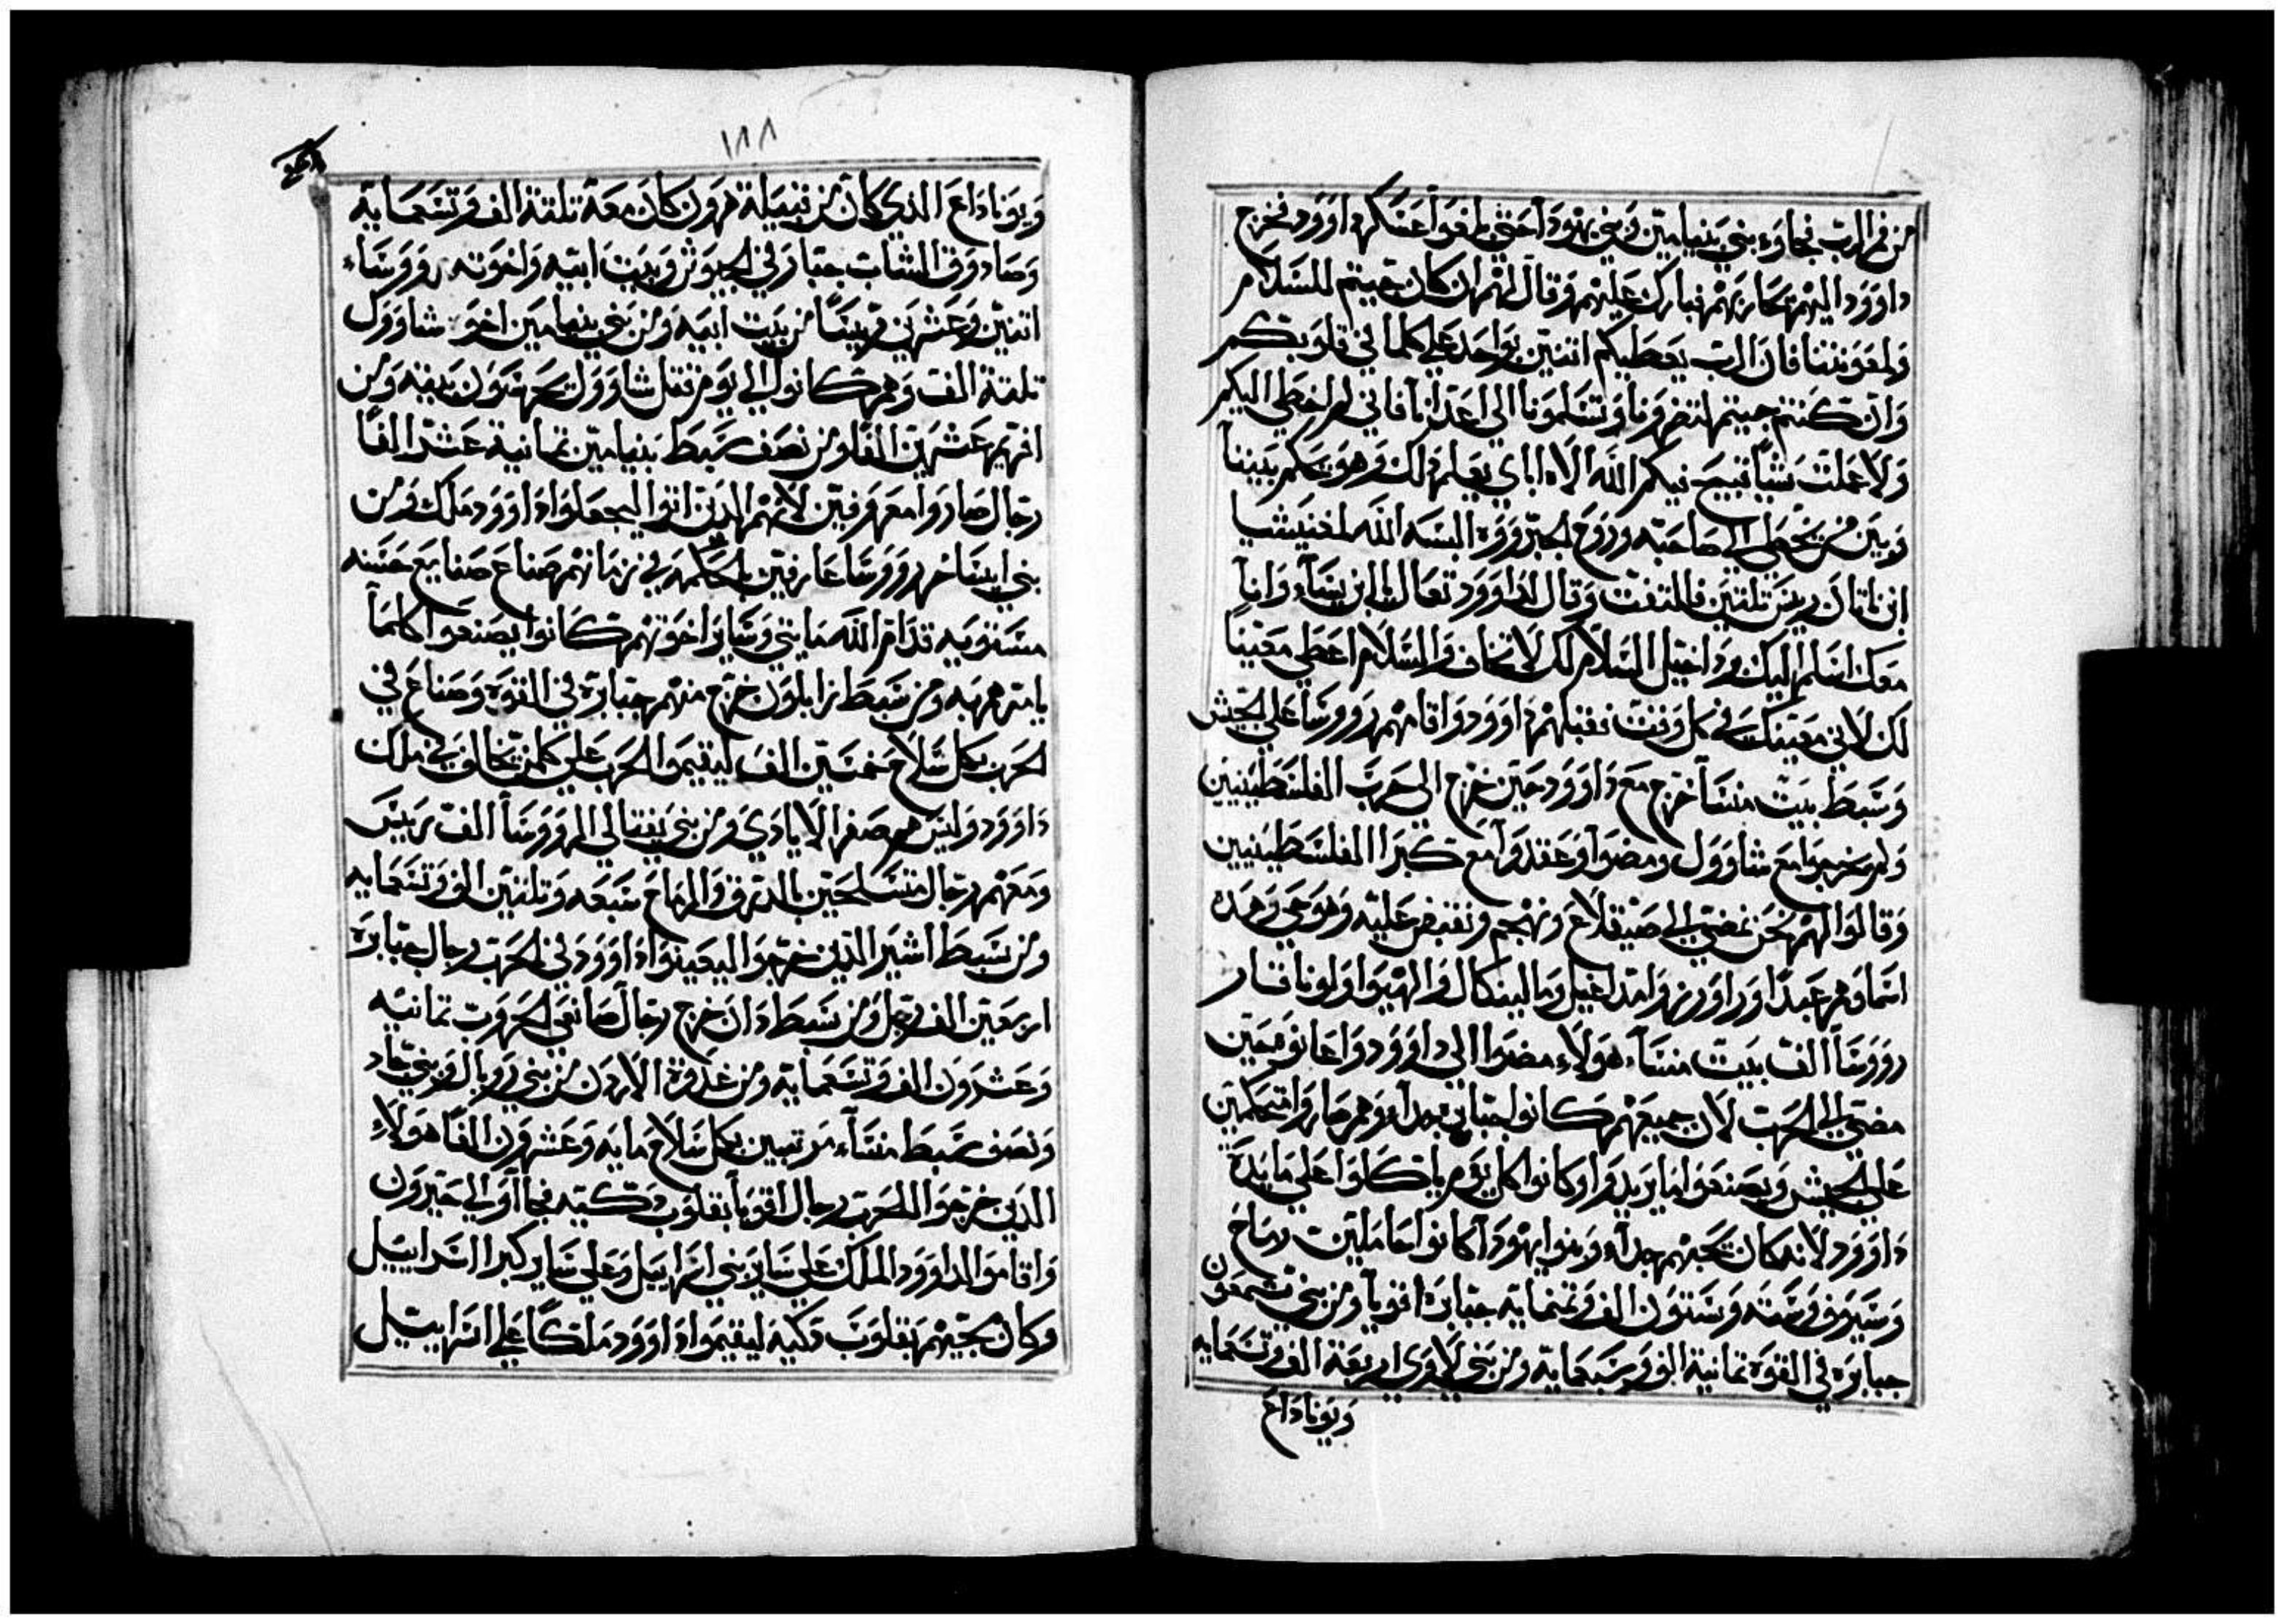 من فم الرب فجاوء بني بنيامين وبني يهودا حتي بلغوا عسكر داوود فخرج
داوود اليهم حاربهم فبارك عليهم وقال لهم ان كان جيتم للسلام
ولمعونتنا فان الرب يعطيكم اتنين بواحد علي كلما في قلوبكم
وان كنتم جيتم لتضرونا وتسلمونا الي اعدانا فاني لم اخطي اليكم
ولا عملت شيا قبيح فيكم الله الاه اباي يعلم ذلك وهو يحكم بيننا
وبين من يخطي الي صاحبه وروح الجبروه البسه الله لعنيشيا
ابن ناتان ريس تلتين فالتفت وقال لداوود تعال يا ابن يساء وانا
معك اسلم اليك يا داخيل السلام لك لا تخاف والسلام اعطي معينا
لك لاني معينك في كل وقت فقبلهم داوود واقامهم رووسا علي الجيش
وسبط بيت منسا خرج مع داوود حين خرج الي حرب الفلسطينيين
ولم يخرجوا مع شاوول ومضوا وعقدوا مع كبرا الفلسطينيين
وقالوا لهم نحن نمضي الي صيقلاغ ونهجم ونقبض عليه وهو حي وهده
اسماوهم عبدا وراورنر وامداعيل ومالينكال والهيوا ولوناقار
رووسا الف بيت منساء هولاء مضوا الي داوود واعانوه حين
مضي الي الحرب لان جميعهم كانوا جبابره جدا وهم صاروا متحكمين
علي الجيش ويصنعوا ما يريدوا وكانوا كل يوم ياكلوا علي مايدة
داوود لانه كان يحبهم جدا وبنوا يهودا كانوا حاملين رماح
وسيوف وسته وستون الف وتمنمايه جبابره اقويا ومن بني شمعون
جبابره في القوه تمانية الف وسبعمايه ومن بني لاوي اربعة الف وتسعمايه
ويوناداع
١٨٨
ويوناداع الذي كان من قبيلة هرون كان معه تلتة الف وتسعمايه
وصادوق الشاب جبار في الجيوش وبيت ابيه واخوته رووساء
اتنين وعشرين ريسا من بيت ابيه ومن بني بنيامين اخوة شاوول
تلتة الف وهم كانوا الي يوم قتل شاوول يحرسون بيته ومن
افريم عشرين الفا ومن نصف سبط بنيامين تمانية عشر الفا
رجال صاروا معروفين لانهم الدين اتوا ليجعلوا داوود ملك ومن
بني ايساخر رووسا عارفين بالحكمه في زمانهم صناع صنايع حسنه
مستويه قدام الله مايتي وساير اخوتهم كانوا يصنعوا كلما
يامرهم به ومن سبط زابلون خرج منهم جبابرة في القوه وصناع في
الحرب بكل سلاح خمسين الف ليقيموا الحرب علي كلمن يخالف في ملك
داوود وليس هم صفر الايادي ومن بني يفتالي الرووسا الف ريس
ومعهم رجال متسلحين بالدرق والرماح سبعه وتلتين الف وتسعمايه
ومن سبط اشير الذين خرجوا ليعينوا داوود في الحرب رجال جبابره
اربعين الف رجل ومن سبط دان خرج رجال صانعي الحروب تمانيه
وعشرون الف وتسعمايه ومن غدوة الاردن من بني روبال وبني جاد
ونصف سبط منساء مرتبين بكل سلاح مايه وعشرون الفا هولاء
الدين خرجوا للحرب رجال اقويا بقلوب دكيه فجااوا الي حبرون
واقاموا لداوود الملك علي ساير بني اسراييل وعلي ساير كبرا اسراييل
وكان محبتهم بقلوب دكيه ليقيموا داوود ملكا علي اسراييل